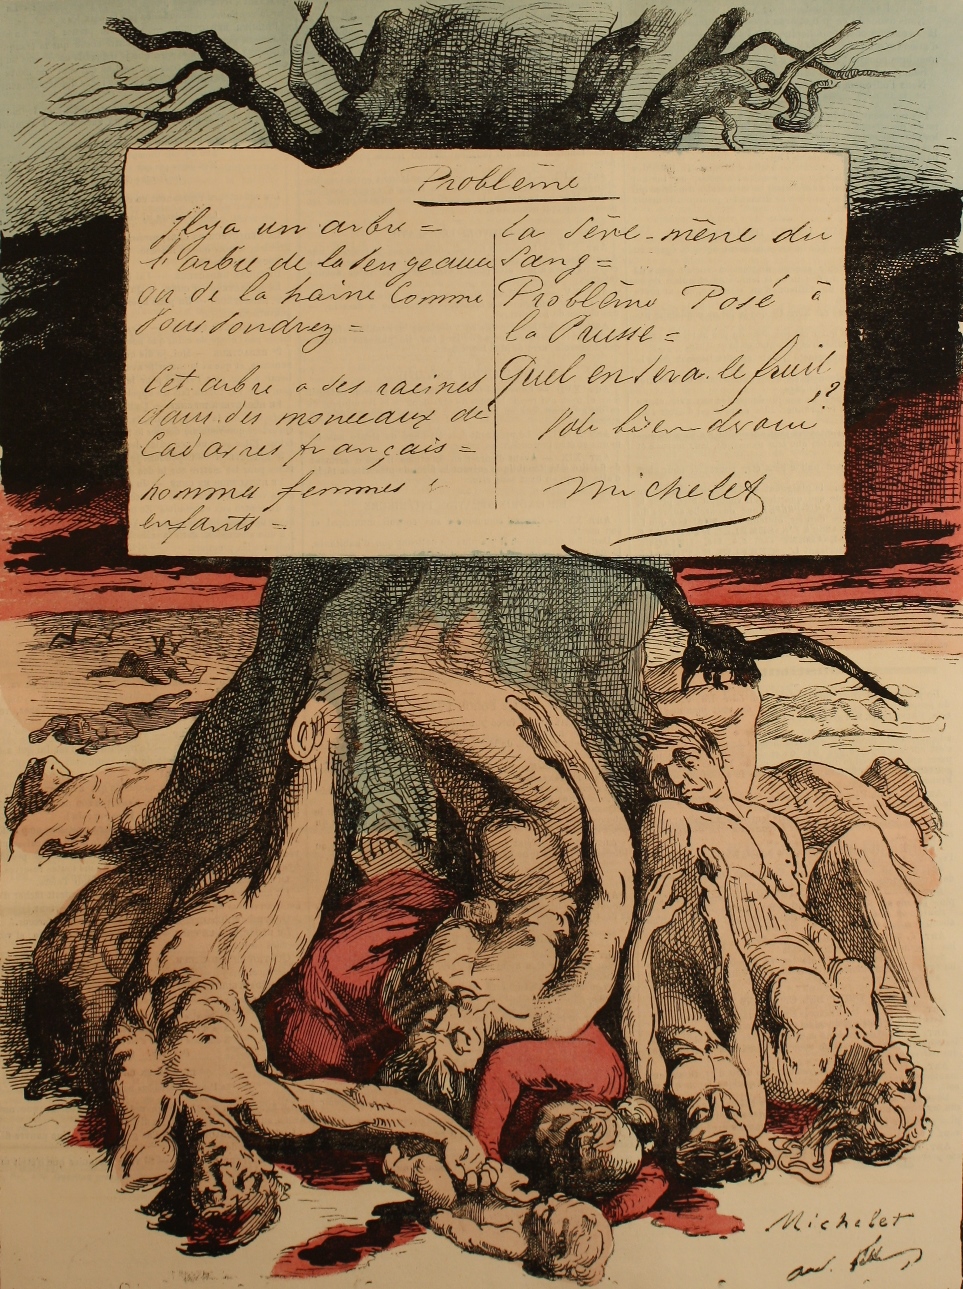 Problème
Il y a un arbre =
l'arbre de la Vengeance
ou de la haine Comme
Vous Voudrez =
Cet arbre a ses racines
dans des monceaux de
Cadavres français =
hommes femmes
enfants =
La Sève-même du
Sang =
Problême Posé à
la Prusse =
Quel en Sera le fruit
?
Michelet
Michelet